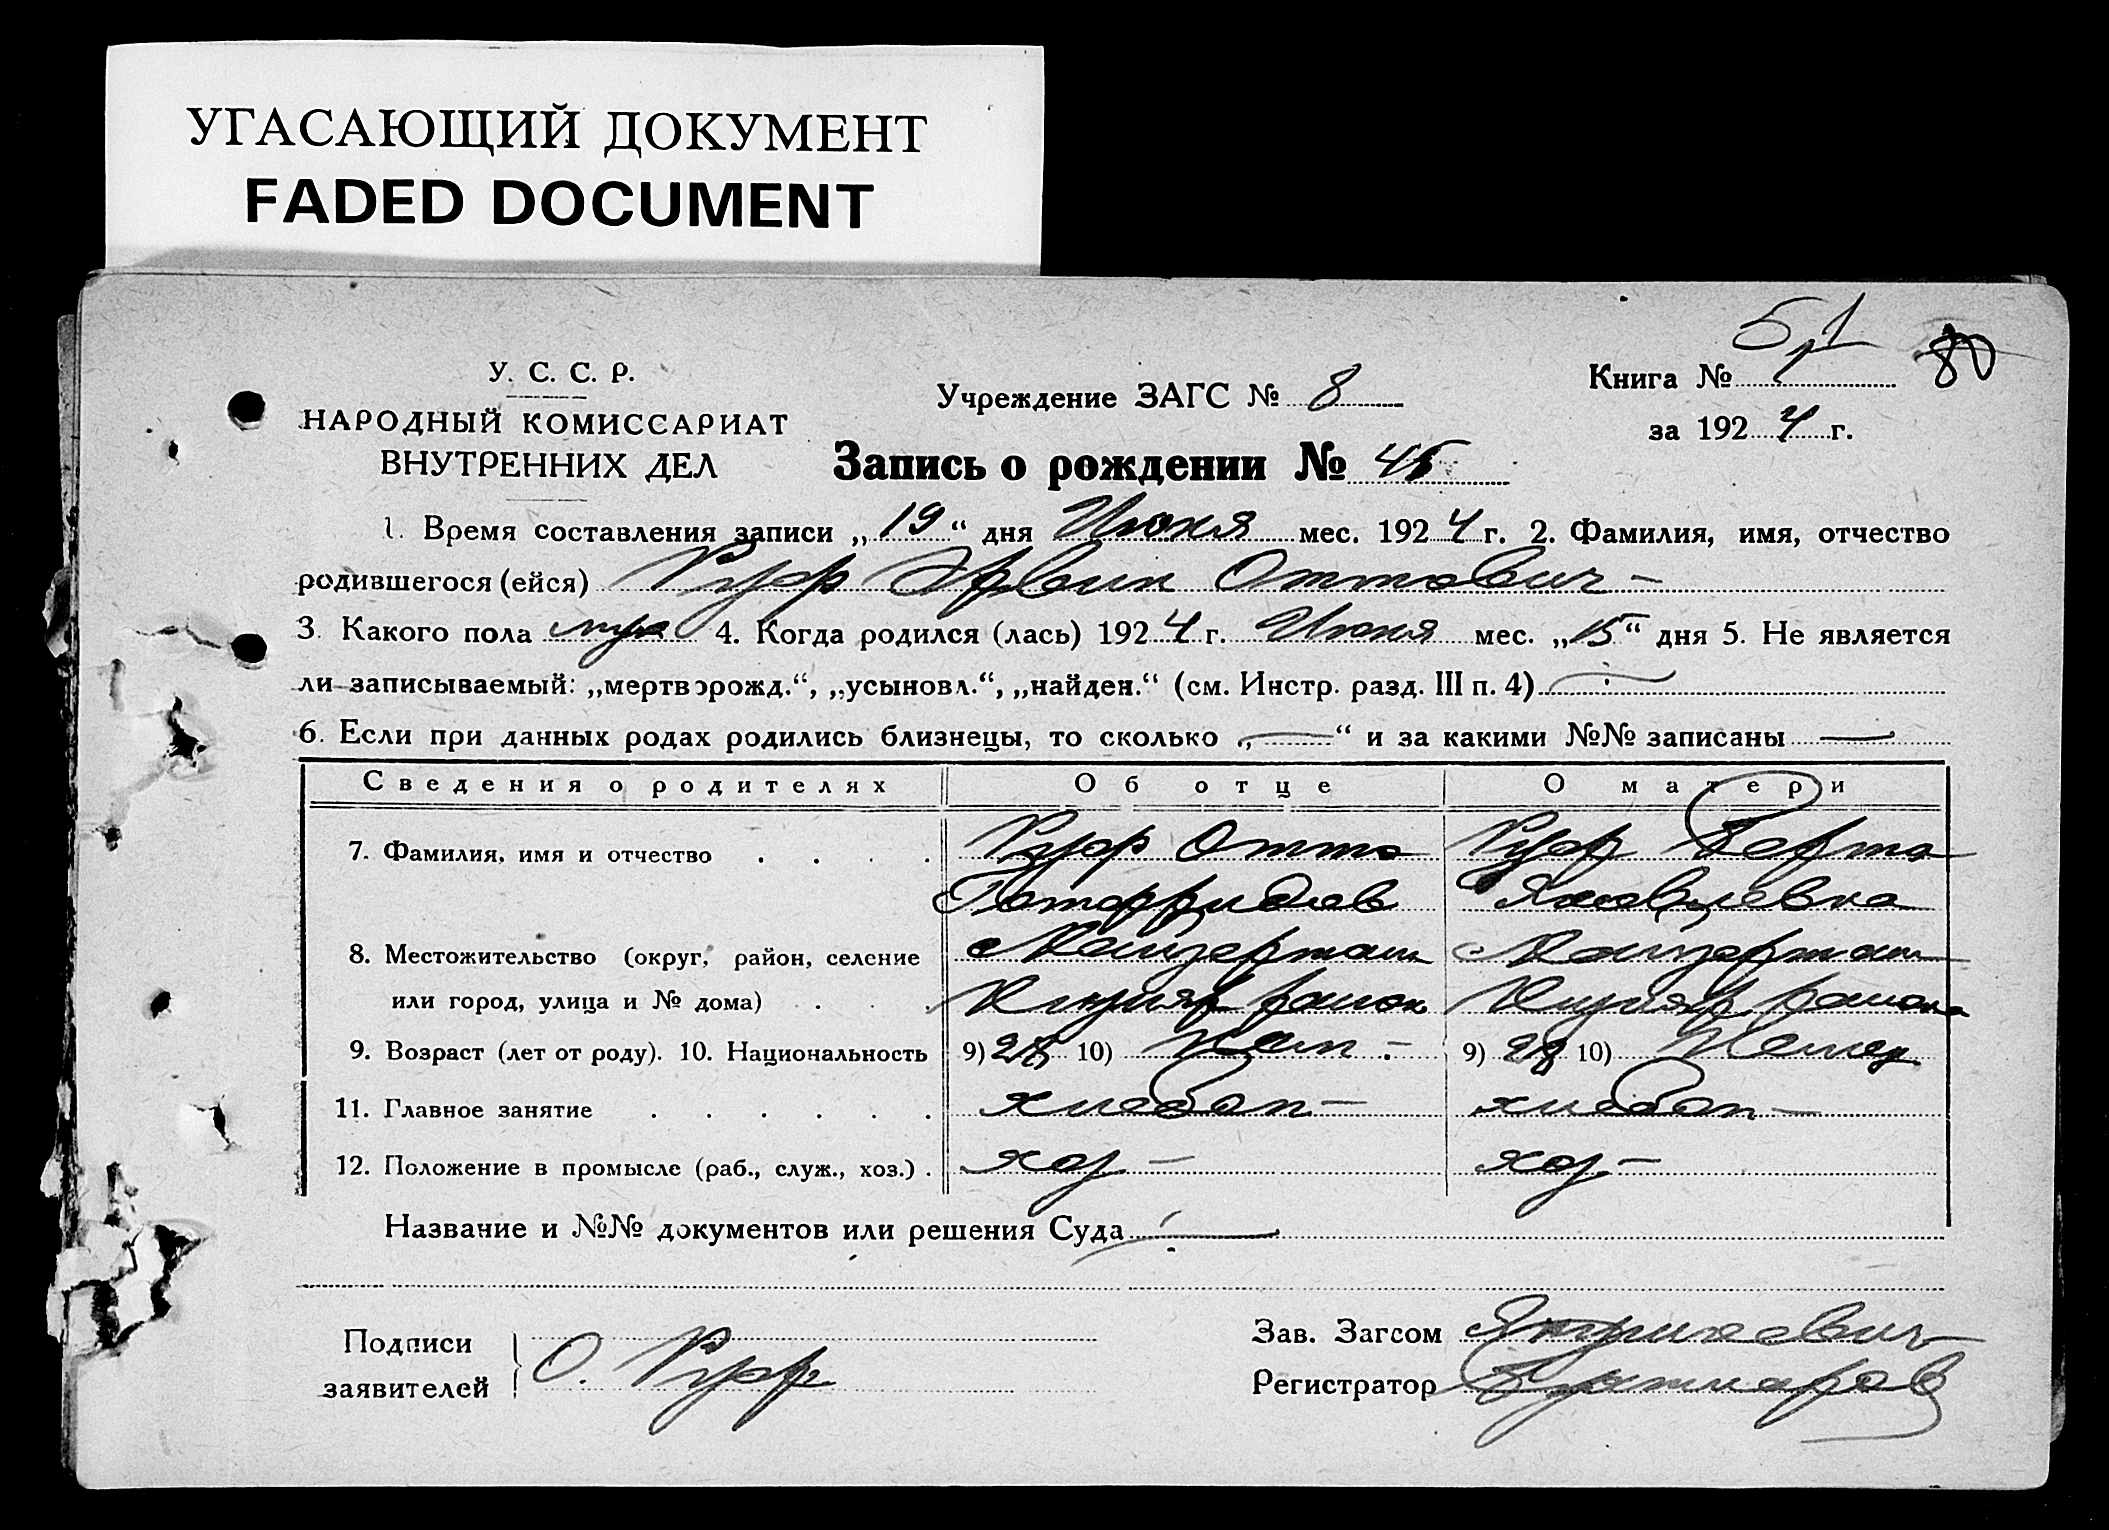 УГАСАЮЩИЙ ДОКУМЕНТ
FADED DOCUMENT
У. С. С. Р.
НАРОДНЫЙ КОМИССАРИАТ
ВНУТРЕННИХ ДЕЛ
Учреждение ЗАГС № 8
Книга №
80
за 1924 г.
Запись о рождении № 45
1. Время составления записи „19“ дня Июня мес. 1924 г. 2. Фамилия, имя, отчество
родившегося (ейся) Руф Эрвин Оттович
3. Какого пола муж 4. Когда родился (лась) 1924 г. Июня мес. „15“ дня 5. Не является
ли записываемый: „мертворожд.“, „усыновл.“, „найден.“ (см. Инстр. разд. III п. 4)
6. Если при данных родах родились близнецы, то сколько „—“ и за какими №№ записаны —
Сведения о родителях Об отце О матери
7. Фамилия, имя и отчество Руф Отто Руф Берта
Готфридов Яковлевна
8. Местожительство (округ, район, селение
или город, улица и № дома) район района
9. Возраст (лет от роду). 10. Национальность 9) 10) Нем - 9) 28 10)
11. Главное занятие хлебоп - хлебоп -
12. Положение в промысле (раб., служ., хоз.) хоз - хоз -
Название и №№ документов или решения Суда —
Подписи
заявителей О. Руф
Зав. Загсом
Регистратор